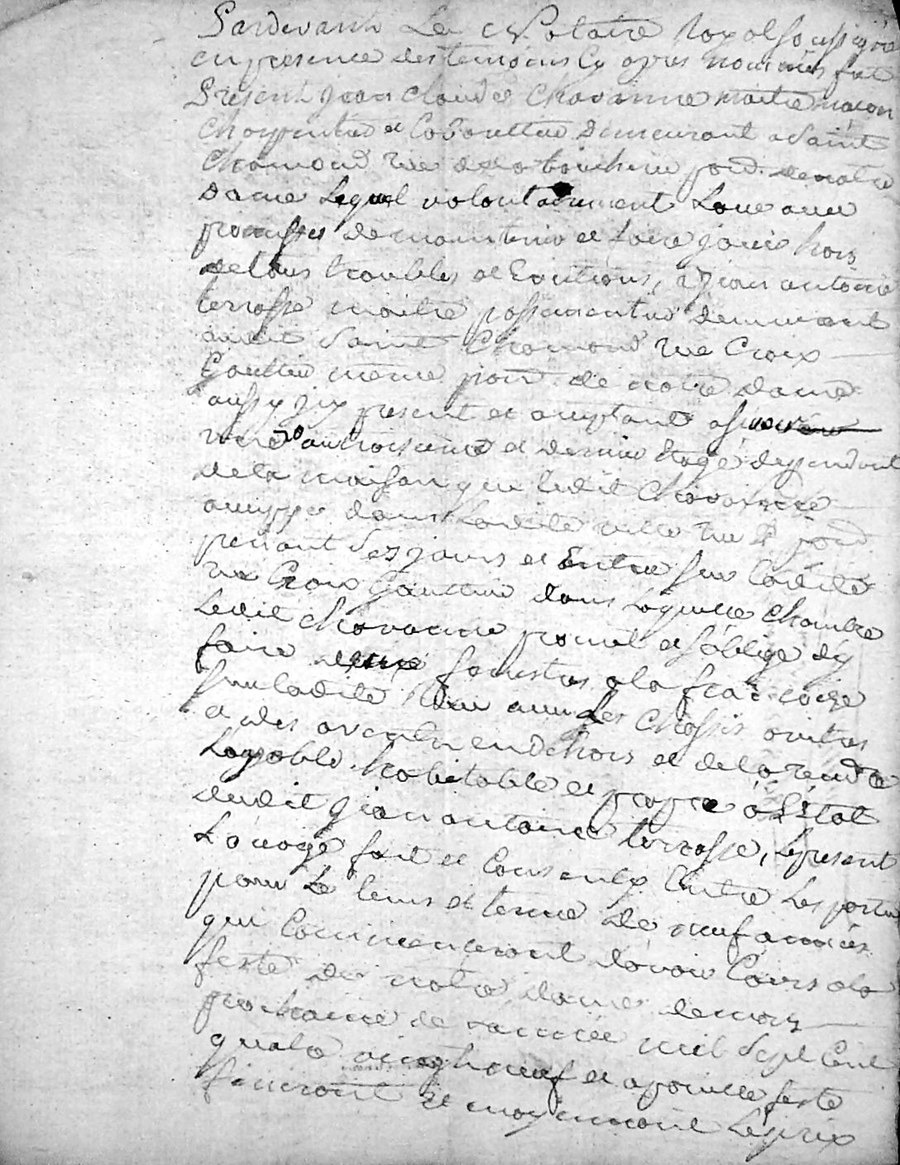 Pardevant Le Notaire Royal soussigné
en presence des temoins cy apres nommés fut
Present jean Claude Chavanne maitre macon
Charpentier et demeurant a Saint
Chamond rue de la boucherie notre
Dame Lequel volontairement Loue avec
promesses de maintenir et faire jouir hors
de tous troubles et Evictions, a jean antoine
terrasse maitre passementier demeurant
audit Saint Chamond rue Croix
Gauttier meme de notre dame
aussy jcy present et acceptant
au troisieme et dernier Etage dependant
de la maison que ledit Chavanne
dans Ladite ville rue
prenant ses jours et Entrée sur Ladite
rue Croix Gauttier dans Laquelle Chambre
Ledit Chavanne promet et s'oblige d'y
faire fenestres a la francoise
sur ladite Rue avec des Chassis a vitres
et des en dehors et de la rendre
Logeable habitable et propre a L'Etat
dudit jean antoine terrasse, Le present
Loüage fait et Consenty Entre Les parties
pour Le tems et terme de neuf années
qui Commenceront d'avoir Cours a la
feste de notre dame de mars
prochaine de l'année mil Sept Cent
quatre vingt neuf et a pareille feste
finiront Et moyennant Le prix